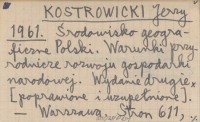 KOSTROWICKI Jerzy
1961. Środowisko geogra-
ficzne Polski. Warunki przy-
rodnicze rozwoju gospodarki
narodowej. Wydanie drugie,
[poprawione i uzupełnione].
— Warszawa, stron 611,